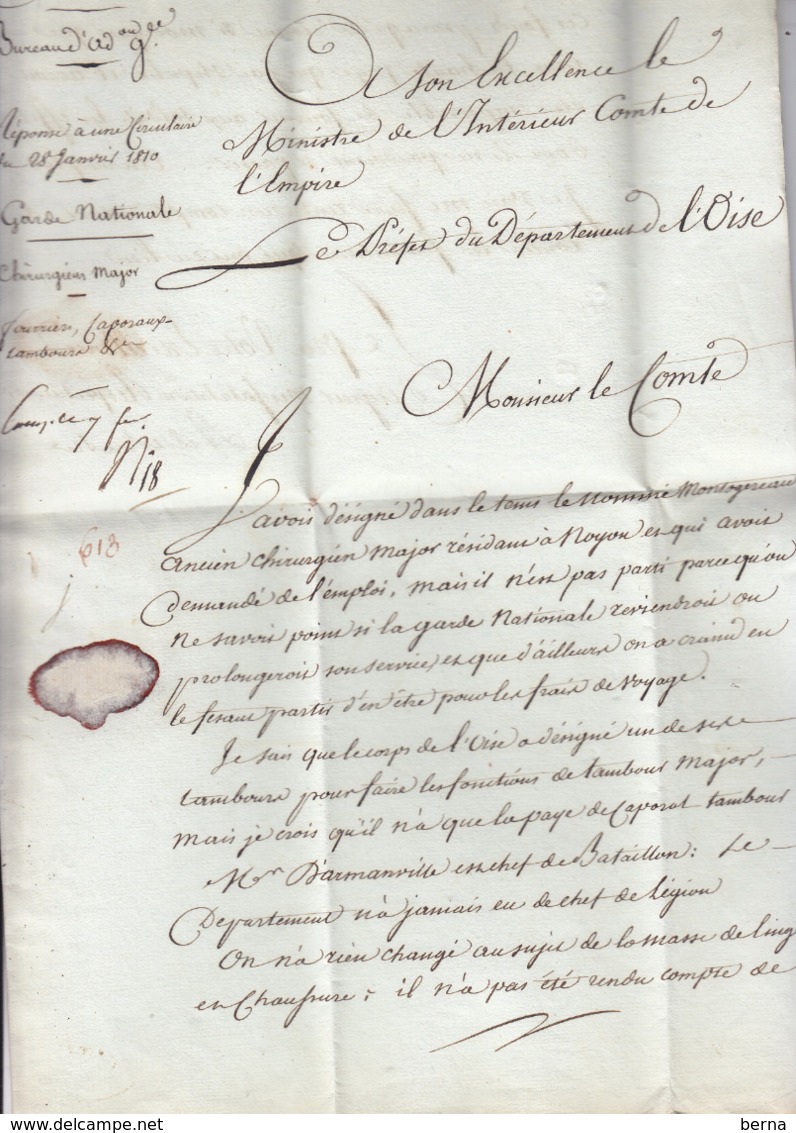 Bureau d'ad.on g.le
Réponse à une Circulaire
du 28 Janvier 1810
Garde Nationale
Chirurgien Major
Fourrier, Caporaux-
tambours &a
N 18
613
A Son Excellence le
Ministre de l'Intérieur Comte de
l'Empire
Le Préfet du Département de l'Oise
Monsieur le Comte
J'avois désigné dans le tems le nommé Montogereau
ancien chirurgien major résidant à Noyon et qui avoit
demandé de l'emploi, mais il n'est pas parti parce qu'on
ne savoit point si la garde Nationale reviendroit ou
prolongeroit son service, et que d'ailleurs on a craint en
le fesant partir d'en être pour les frais de voyage.
Je sais que le corps de l'Oise a désigné un de ses
tambours pour faire les fonctions de tambour major,
mais je crois qu'il n'a que la paye de Caporal tambour
Mr D'armanville est chef de Bataillon: Le
Département n'a jamais eu de chef de Légion
On n'a rien changé au sujet de la masse de linge
et Chaussure; il n'a pas été rendu compte de
www.delcampe.net
berna